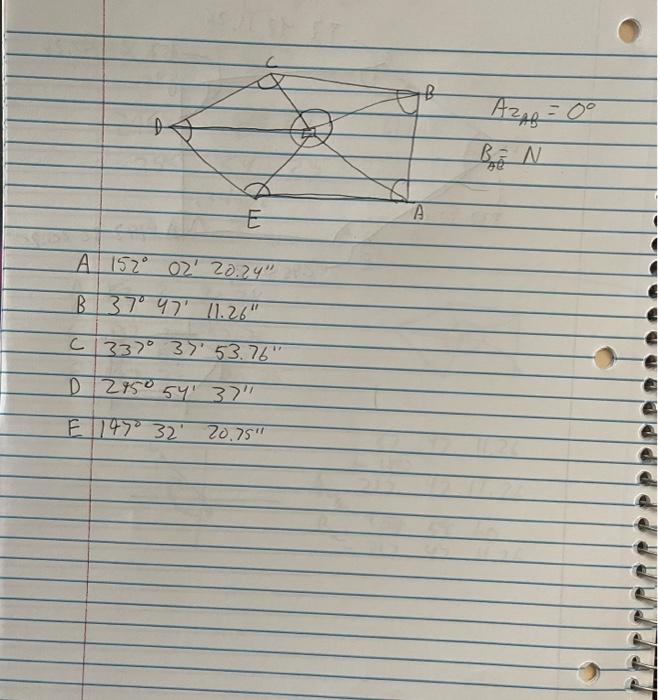 C
B
D
E
A
Az_AB = 0°
B_AB = N
A 152° 02' 20.24"
B 37° 47' 11.26"
C 337° 37' 53.76"
D 295° 54' 37"
E 147° 32' 20.75"